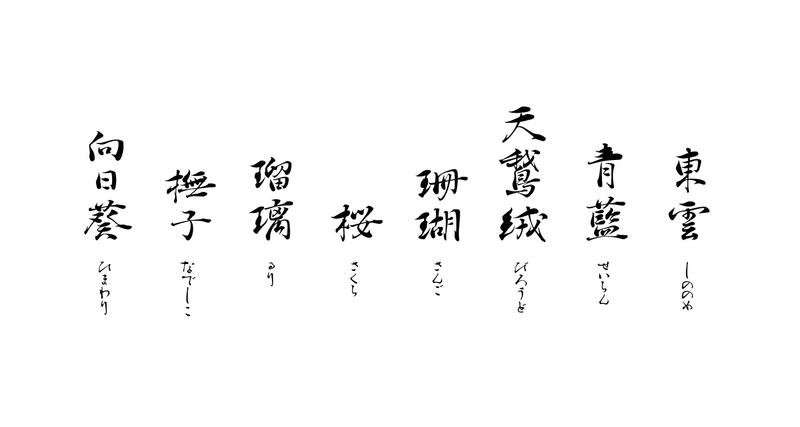 東雲
しののめ
青藍
せいらん
天鵞絨
びろうど
珊瑚
さんご
桜
さくら
瑠璃
るり
撫子
なでしこ
向日葵
ひまわり